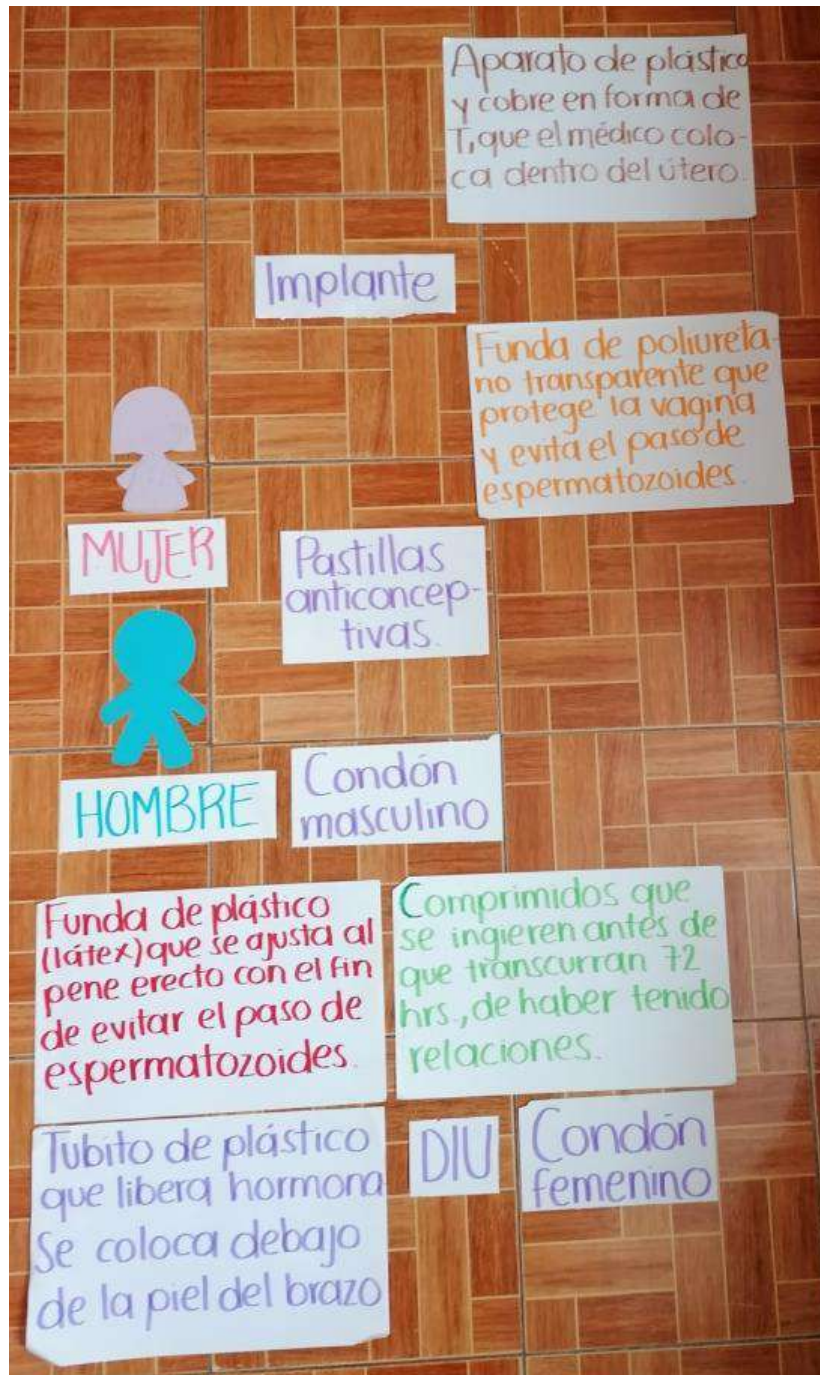 Aparato de plástico
y cobre en forma de
T, que el médico colo-
ca dentro del útero.
Implante
Funda de poliureta-
no transparente que
protege la vagina
y evita el paso de
espermatozoides.
MUJER
Pastillas
anticoncep-
tivas.
HOMBRE
Condón
masculino
Funda de plástico
(látex) que se ajusta al
pene erecto con el fin
de evitar el paso de
espermatozoides.
Comprimidos que
se ingieren antes de
que transcurran 72
hrs., de haber tenido
relaciones.
Tubito de plástico
que libera hormona
Se coloca debajo
de la piel del brazo
DIU
Condón
femenino